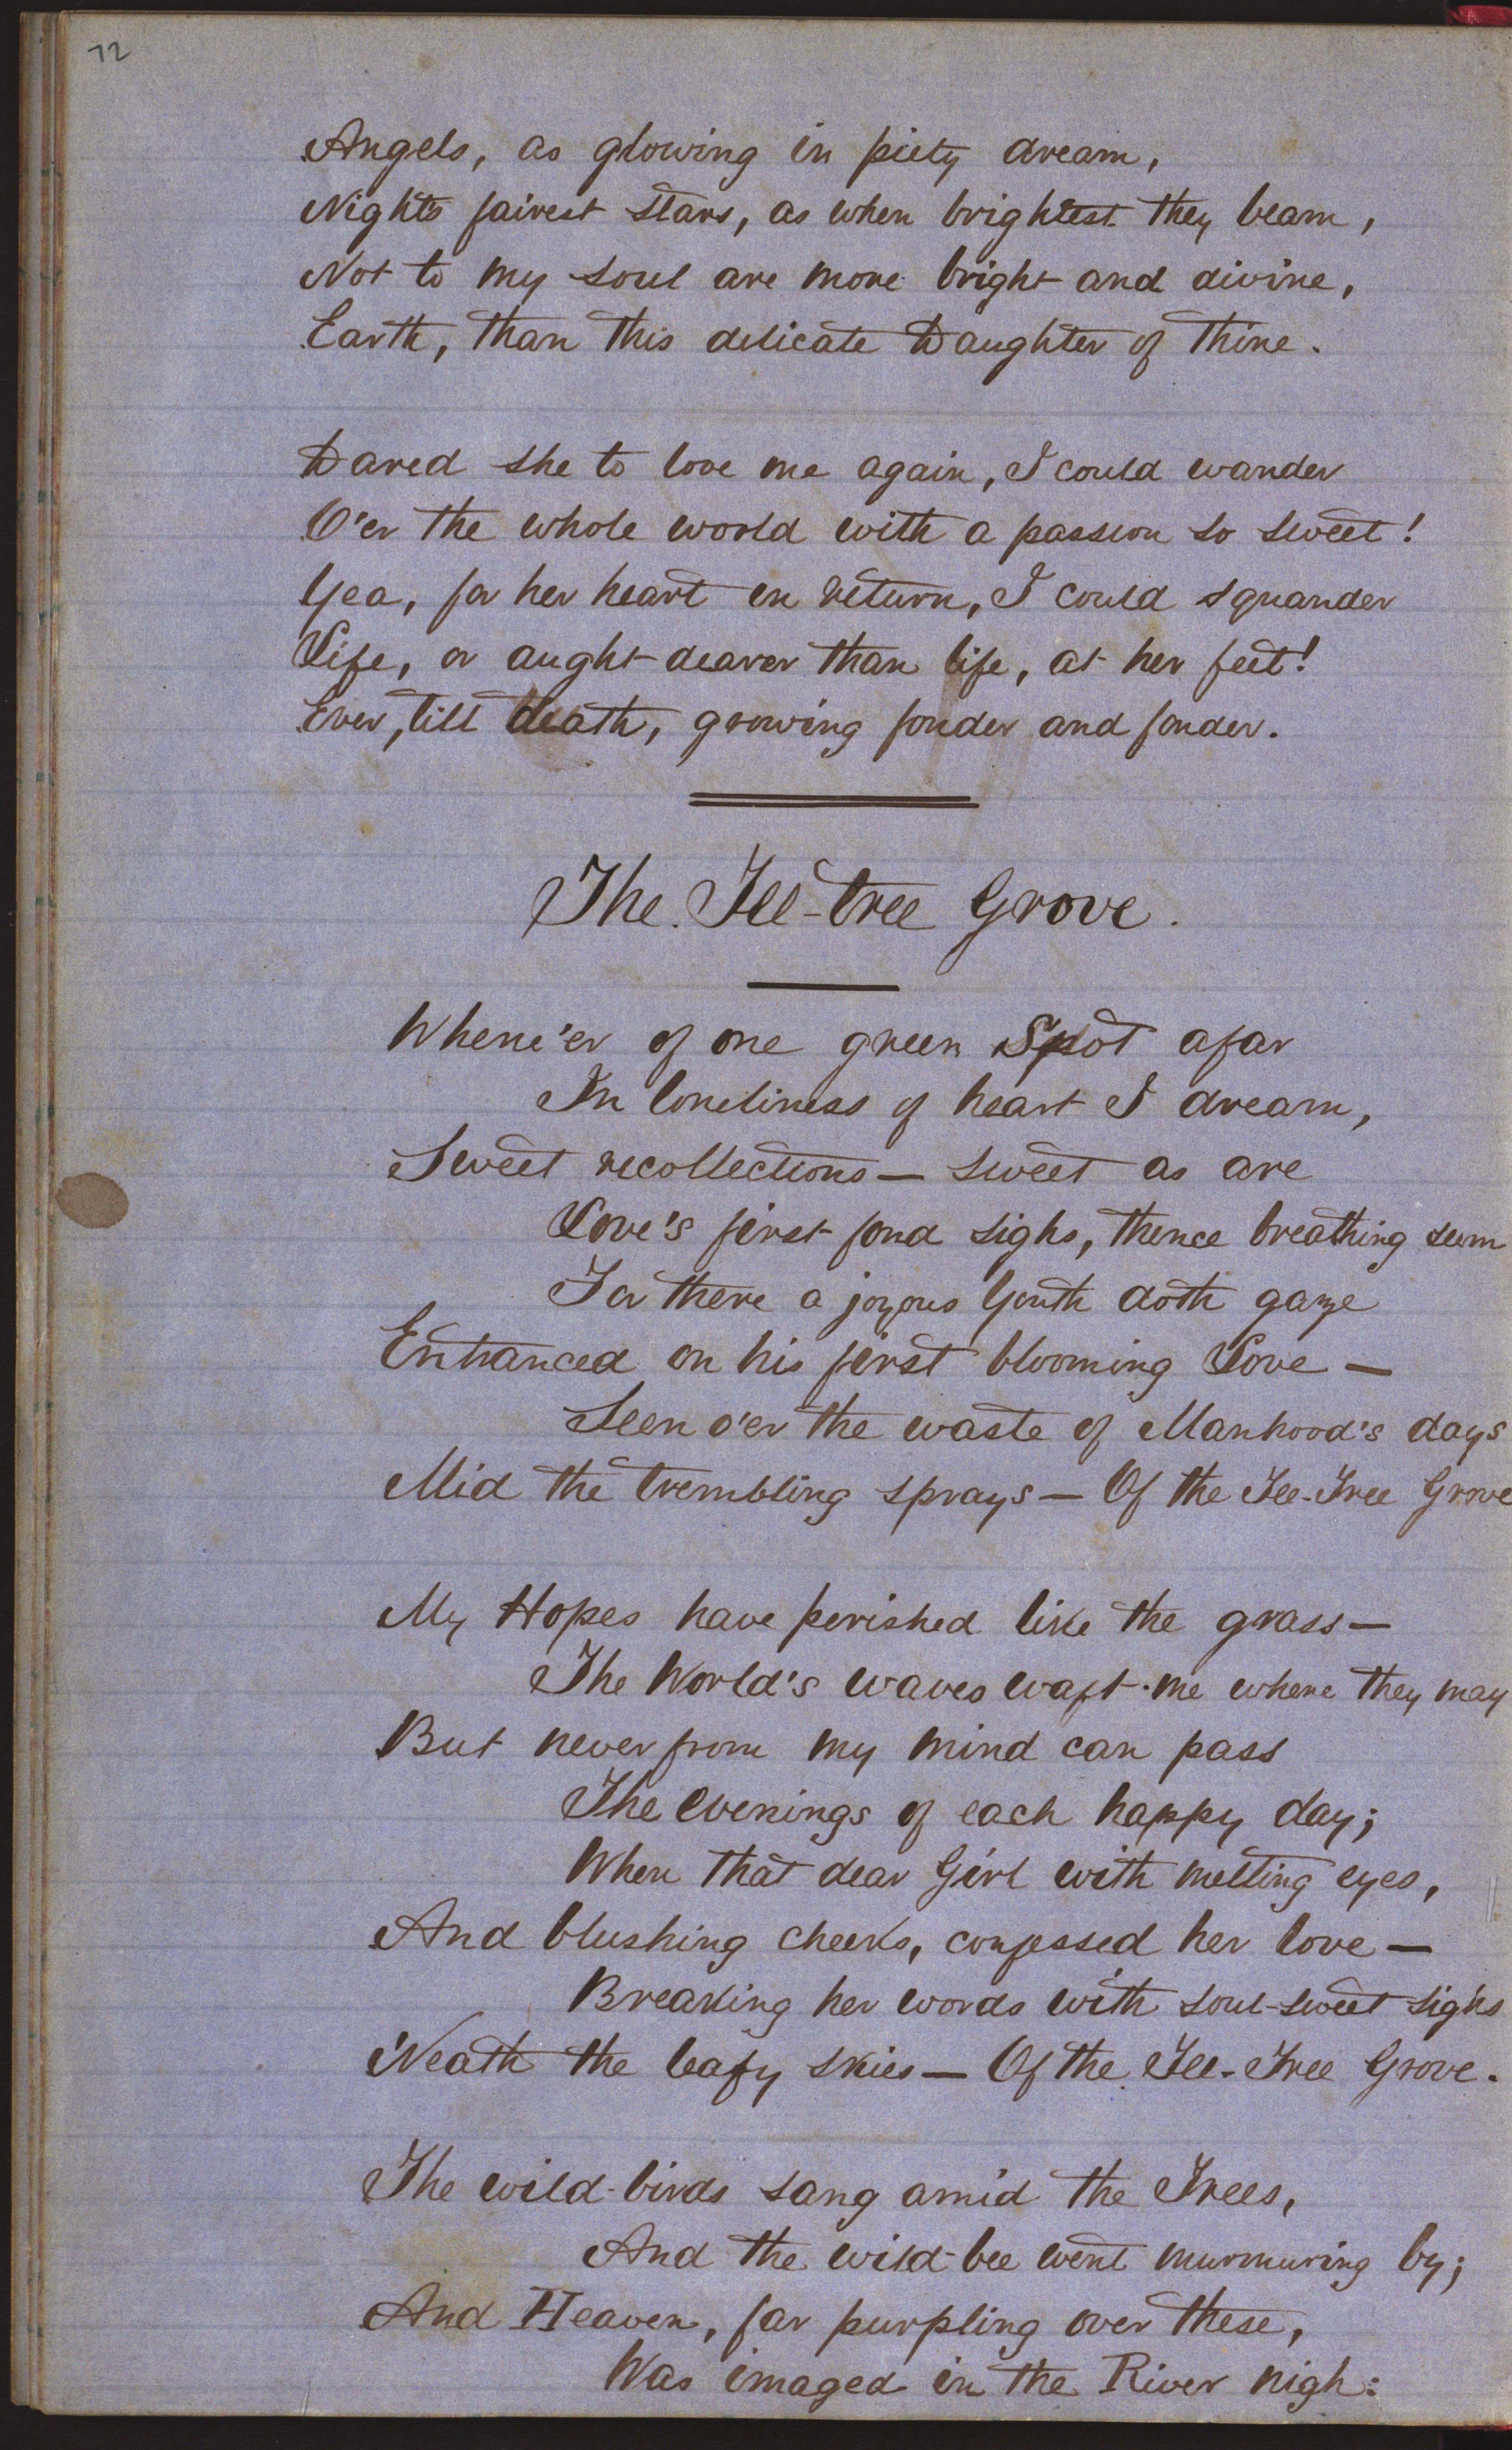 72
Angels, as glowing in piety dream,
Night's fairest stars, as when brightest they beam,
Not to my soul are more bright and divine,
Earth, than this delicate Daughter of thine.
Dared she to love me again, I could wander
O'er the whole world with a passion so sweet!
Yea, for her heart in return, I could squander
Life, or aught dearer than life, at her feet!
Ever, till death, growing fonder and fonder.
The Tee-tree Grove.
Whene'er of one green Spot afar
In loneliness of heart I dream,
Sweet recollections — sweet as are
Love's first fond sighs, thence breathing seem
For there a joyous Youth doth gaze
Entranced on his first blooming Love —
Seen o'er the waste of Manhood's days
Mid the trembling sprays — Of the Tee-Tree Grove
My Hopes have perished like the grass —
The World's waves waft me where they may
But never from my mind can pass
The evenings of each happy day;
When that dear Girl with melting eyes,
And blushing cheeks, confessed her love —
Breaking her words with soul-sweet sighs
'Neath the leafy skies — Of the Tee-Tree Grove.
The wild-birds sang amid the Trees,
And the wild-bee went murmuring by;
And Heaven, far purpling over these,
Was imaged in the River nigh: